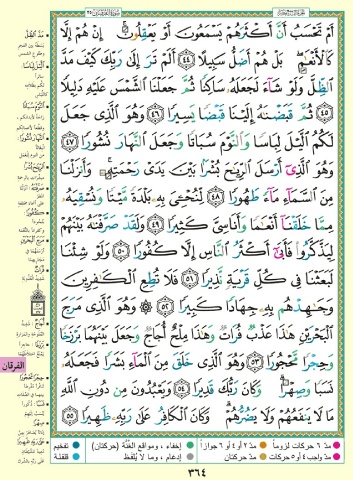 أَمْ تَحْسَبُ أَنَّ أَكْثَرَهُمْ يَسْمَعُونَ أَوْ يَعْقِلُونَ ۚ إِنْ هُمْ إِلَّا
كَالْأَنْعَـٰمِ ۖ بَلْ هُمْ أَضَلُّ سَبِيلًا ٤٤ أَلَمْ تَرَ إِلَىٰ رَبِّكَ كَيْفَ مَدَّ
الظِّلَّ وَلَوْ شَآءَ لَجَعَلَهُۥ سَاكِنًا ثُمَّ جَعَلْنَا الشَّمْسَ عَلَيْهِ دَلِيلًا
٤٥ ثُمَّ قَبَضْنَـٰهُ إِلَيْنَا قَبْضًا يَسِيرًا ٤٦ وَهُوَ الَّذِى جَعَلَ
لَكُمُ الَّيْلَ لِبَاسًا وَالنَّوْمَ سُبَاتًا وَجَعَلَ النَّهَارَ نُشُورًا ٤٧
وَهُوَ الَّذِىٓ أَرْسَلَ الرِّيَـٰحَ بُشْرًۢا بَيْنَ يَدَىْ رَحْمَتِهِۦ ۚ وَأَنزَلْنَا
مِنَ السَّمَآءِ مَآءً طَهُورًا ٤٨ لِّنُحْـِۧىَ بِهِۦ بَلْدَةً مَّيْتًا وَنُسْقِيَهُۥ
مِمَّا خَلَقْنَآ أَنْعَـٰمًا وَأَنَاسِىَّ كَثِيرًا ٤٩ وَلَقَدْ صَرَّفْنَـٰهُ بَيْنَهُمْ
لِيَذَّكَّرُوا۟ فَأَبَىٰٓ أَكْثَرُ النَّاسِ إِلَّا كُفُورًا ٥٠ وَلَوْ شِئْنَا
لَبَعَثْنَا فِى كُلِّ قَرْيَةٍ نَّذِيرًا ٥١ فَلَا تُطِعِ الْكَـٰفِرِينَ
وَجَـٰهِدْهُم بِهِۦ جِهَادًا كَبِيرًا ٥٢ وَهُوَ الَّذِى مَرَجَ
الْبَحْرَيْنِ هَـٰذَا عَذْبٌ فُرَاتٌ وَهَـٰذَا مِلْحٌ أُجَاجٌ وَجَعَلَ بَيْنَهُمَا بَرْزَخًا
وَحِجْرًا مَّحْجُورًا ٥٣ وَهُوَ الَّذِى خَلَقَ مِنَ الْمَآءِ بَشَرًا فَجَعَلَهُۥ
نَسَبًا وَصِهْرًا ۗ وَكَانَ رَبُّكَ قَدِيرًا ٥٤ وَيَعْبُدُونَ مِن دُونِ اللَّهِ
مَا لَا يَنفَعُهُمْ وَلَا يَضُرُّهُمْ ۗ وَكَانَ الْكَافِرُ عَلَىٰ رَبِّهِۦ ظَهِيرًا ٥٥
الفرقان
مدّ ٦ حركات لزوماً مدّ ٢ أو ٤ أو ٦ جوازاً إخفاء، ومواقع الغنّة (حركتان) تفخيم
مدّ واجب ٤ أو ٥ حركات مدّ حركتان إدغام، وما لا يُلفظ قلقلة
٣٦٤